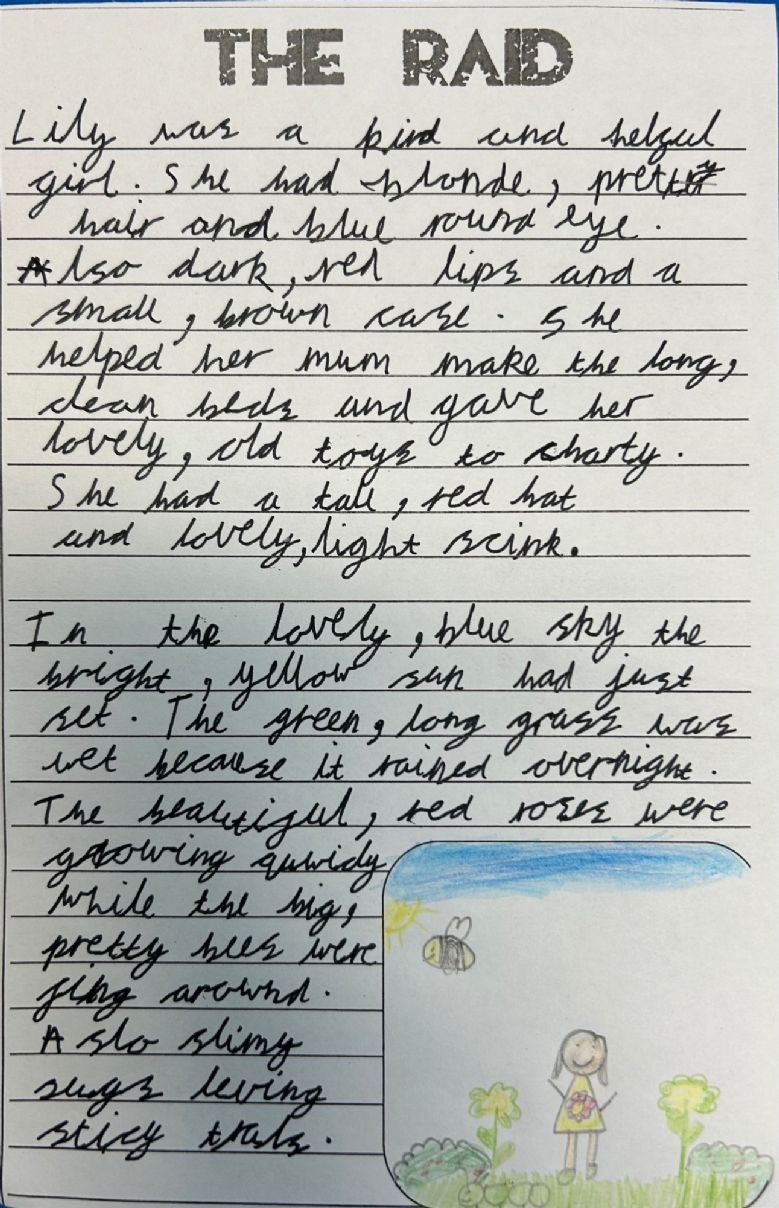 THE RAID
Lily was a kind and helful
girl. She had blonde, pretty
hair and blue round eye.
Also dark, red lips and a
small, brown case. She
helped her mum make the long,
clean beds and gave her
lovely, old toys to charty.
She had a tall, red hat
and lovely, light scink.
In the lovely, blue sky the
bright, yellow sun had just
set. The green, long grass was
wet because it rained overnight.
The beautiful, red roses were
growing quwidy
while the big,
pretty bees were
fling around.
A slo slimy
sugs leving
sticy trals.